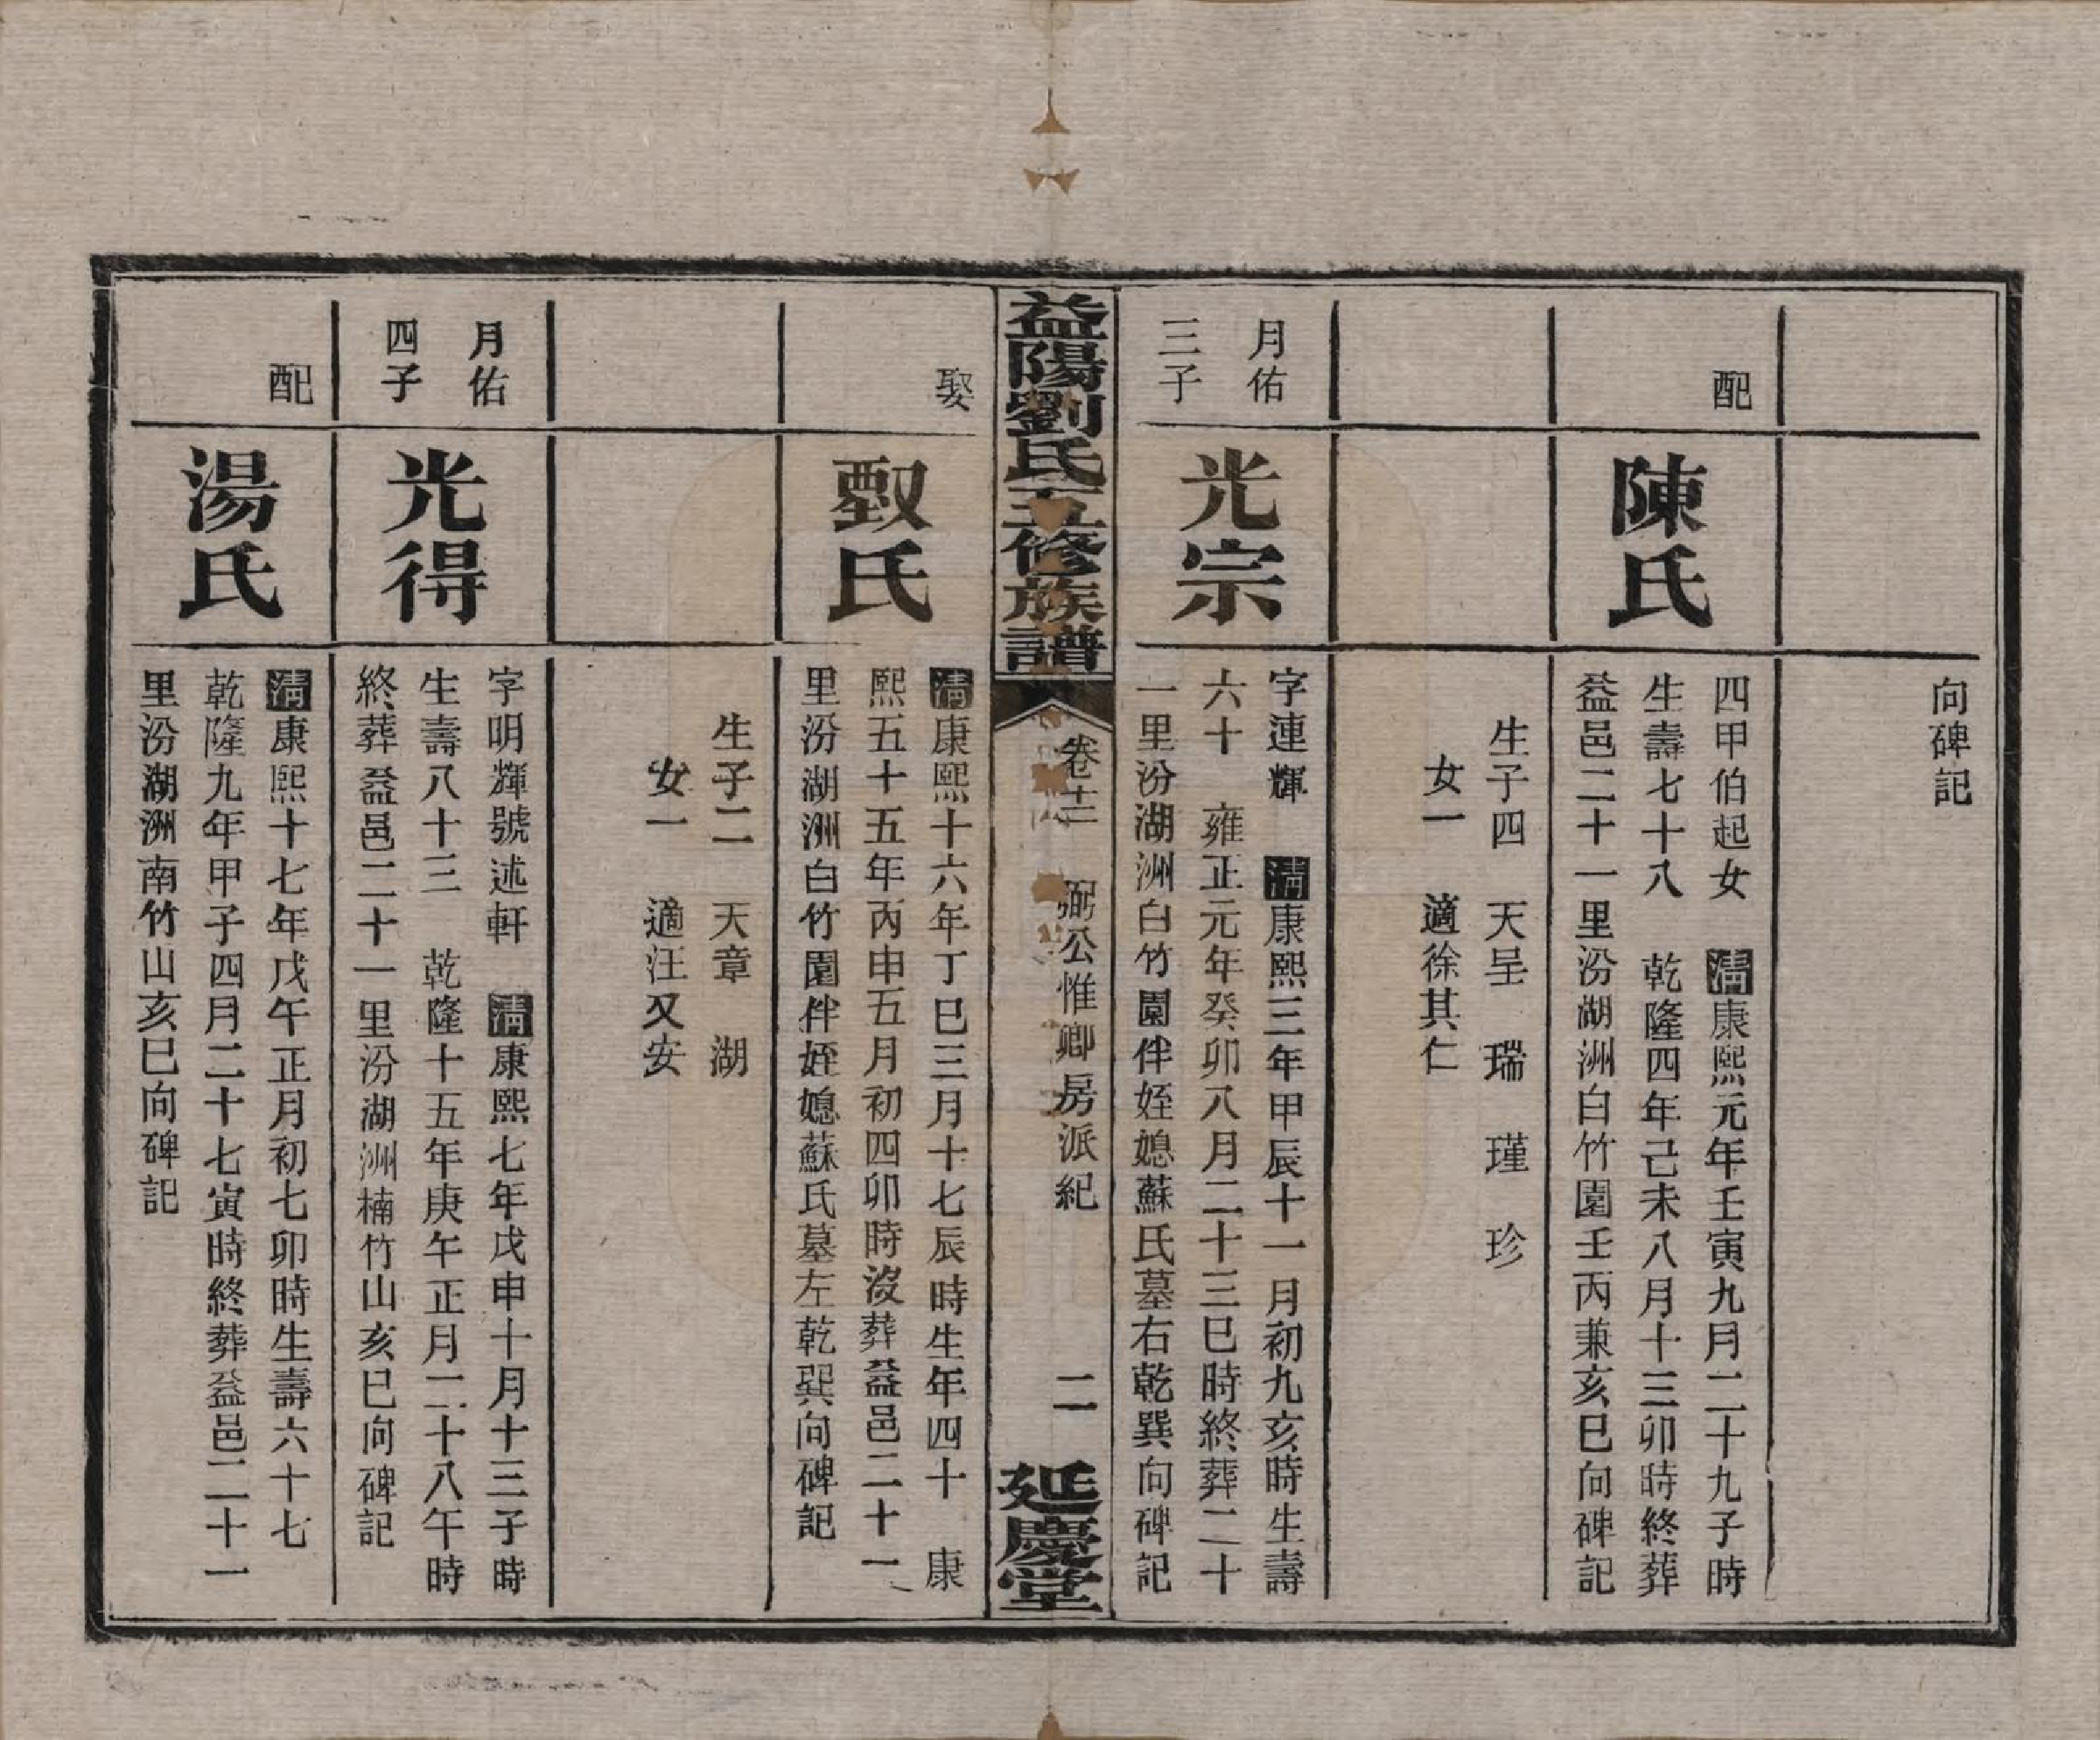 向碑記
配
陳氏
四甲伯起女 清康熙元年壬寅九月二十九子時
生壽七十八 乾隆四年己未八月十三卯時終葬
益邑二十一里汾湖洲白竹園壬丙兼亥巳向碑記
生子四 天呈 瑞 瑾 珍
女一 適徐其仁
月佑
三子
光宗
字連輝 清康熙三年甲辰十一月初九亥時生壽
六十 雍正元年癸卯八月二十三巳時終葬二十
一里汾湖洲白竹園伴姪媳蘇氏墓右乾巽向碑記
益陽劉氏五修族譜
卷十二 弼公惟卿房派紀
二
延慶堂
娶
氏
清康熙十六年丁巳三月十七辰時生年四十 康
熙五十五年丙申五月初四卯時沒葬益邑二十一
里汾湖洲白竹園伴姪媳蘇氏墓左乾巽向碑記
生子二 天章 湖
女一 適汪又安
月佑
四子
光得
字明輝號述軒 清康熙七年戊申十月十三子時
生壽八十三 乾隆十五年庚午正月二十八午時
終葬益邑二十一里汾湖洲楠竹山亥巳向碑記
配
湯氏
清康熙十七年戊午正月初七卯時生壽六十七
乾隆九年甲子四月二十七寅時終葬益邑二十一
里汾湖洲南竹山亥巳向碑記